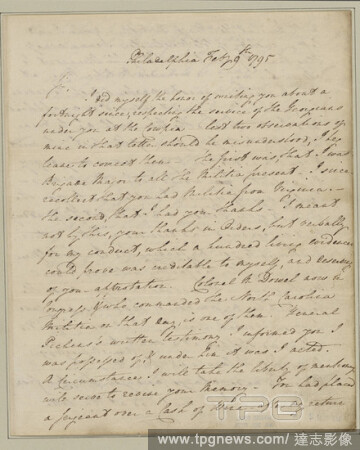 Philadelphia Feby 9th 1795
Sir.
I did myself the honor of writing you about a
fortnight since, respecting the service of the Georgians
under you at the Cowpens lest two observations of
mine in that letter should be misunderstood, I beg
leave to correct them. The first was, that I was
Brigade Major to all the Militia present. I since
recollect that you had Militia from Virginia —
the second, that I had your thanks. I meant
not by this, your thanks in Orders, but verbally
for my conduct, which a hundred living evidences
could prove was creditable to myself, and deserving
of your approbation. Colonel Mc Dowel now in
Congress & who commanded the North Carolina
Militia on that day, is one of them. General
Pickens's written testimony I informed you I
was possessed of & under him it was I acted.
A circumstance I will take the liberty of mentioning
will serve to revive your memory. You had placed
a sergeant over a Cask of
www.tpgnews.com / 達志影像
TPG